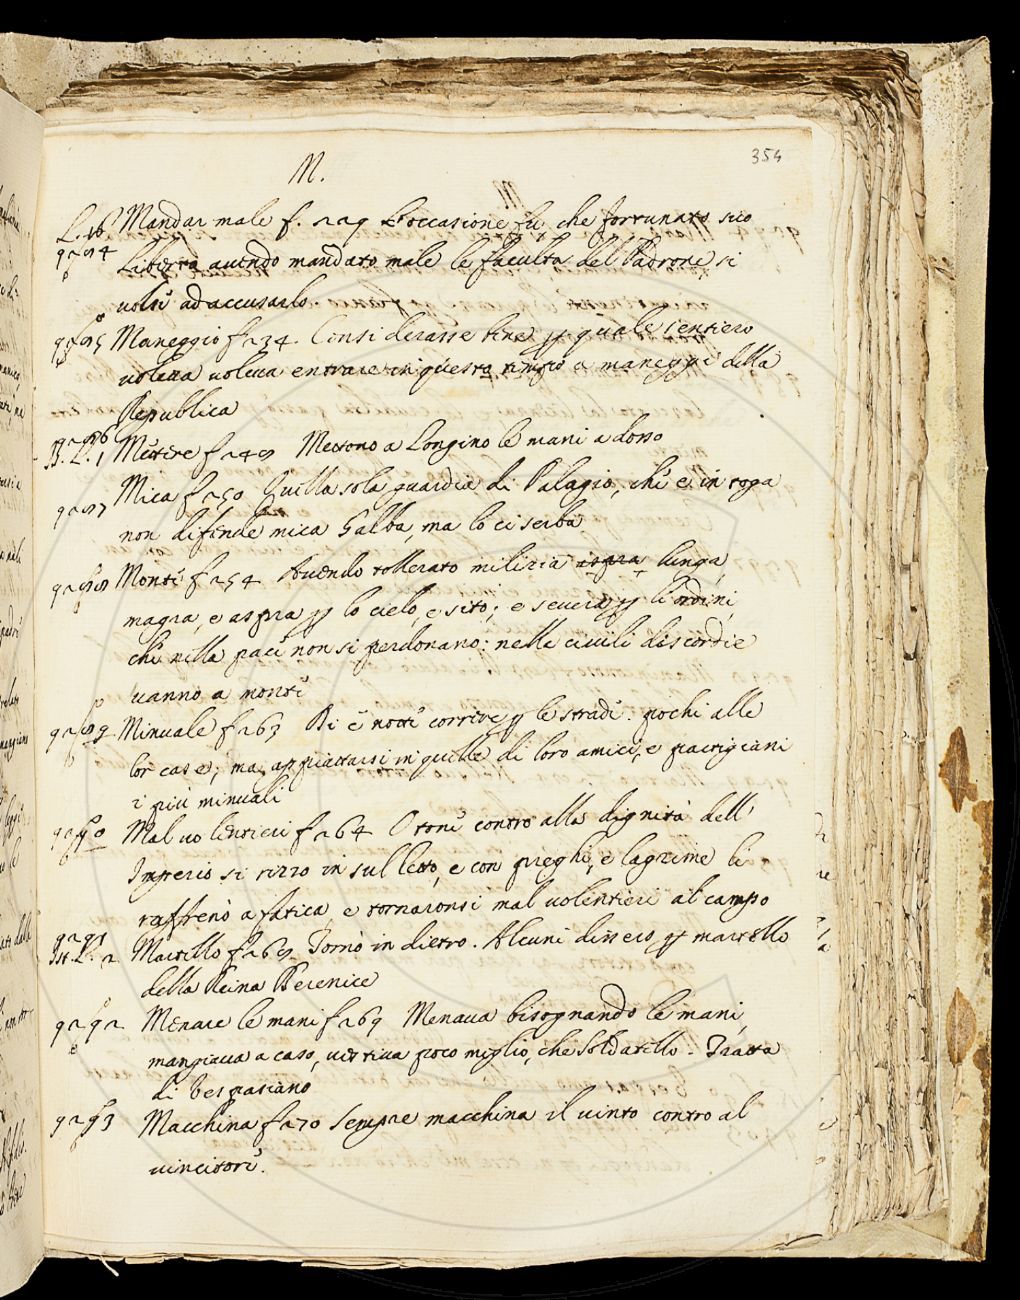 354
M.
L. 16 Mandar male f. 229 L'occasione fu che fortunato suo
9284 Liberto auendo mandato male le facultà del Padrone, si
volse ad accusarlo.
9285 Maneggio f 234. Considerasse bene p quale sentiero
voleua voleua entrare in questo tempo a maneggi della
Republica
9286
Mettere f 249 Messono a Longino le mani adosso
9287 Mica f 250 Quella sola guardia di Palagio, che è in toga
non difende mica Galba, ma lo ci serba
9288 Monte f 254 Auendo tollerato milizia aspra lunga,
magra, e aspra p lo cielo, e sito; e seuera p li ordini,
che nella pace non si perdonano: nelle ciuili discordie
uanno a monte
9289 Minuale f 263 Di è notte correre p le strade: pochi alle
lor case; ma appiattarsi in quelle di loro amici, e partigiani
i più minuali
9290 Mal uolentieri f 264 Otone contro alla dignità dell'
Imperio si rizzò in sul letto, e con preghi, e lagrime li
raffrenò a fatica, e tornaronsi mal uolentieri al campo
9291 Martello f 269 Tornò in dietro. Alcuni dissero p martello
della Reina Berenice
9292 Menare le mani f 269 Menaua bisognando le mani,
mangiaua a caso, uestiua poco meglio, che Soldatello. Tratta
di Vespasiano
9293 Macchina f 270 Sempre macchina il uinto contro al
uincitore.